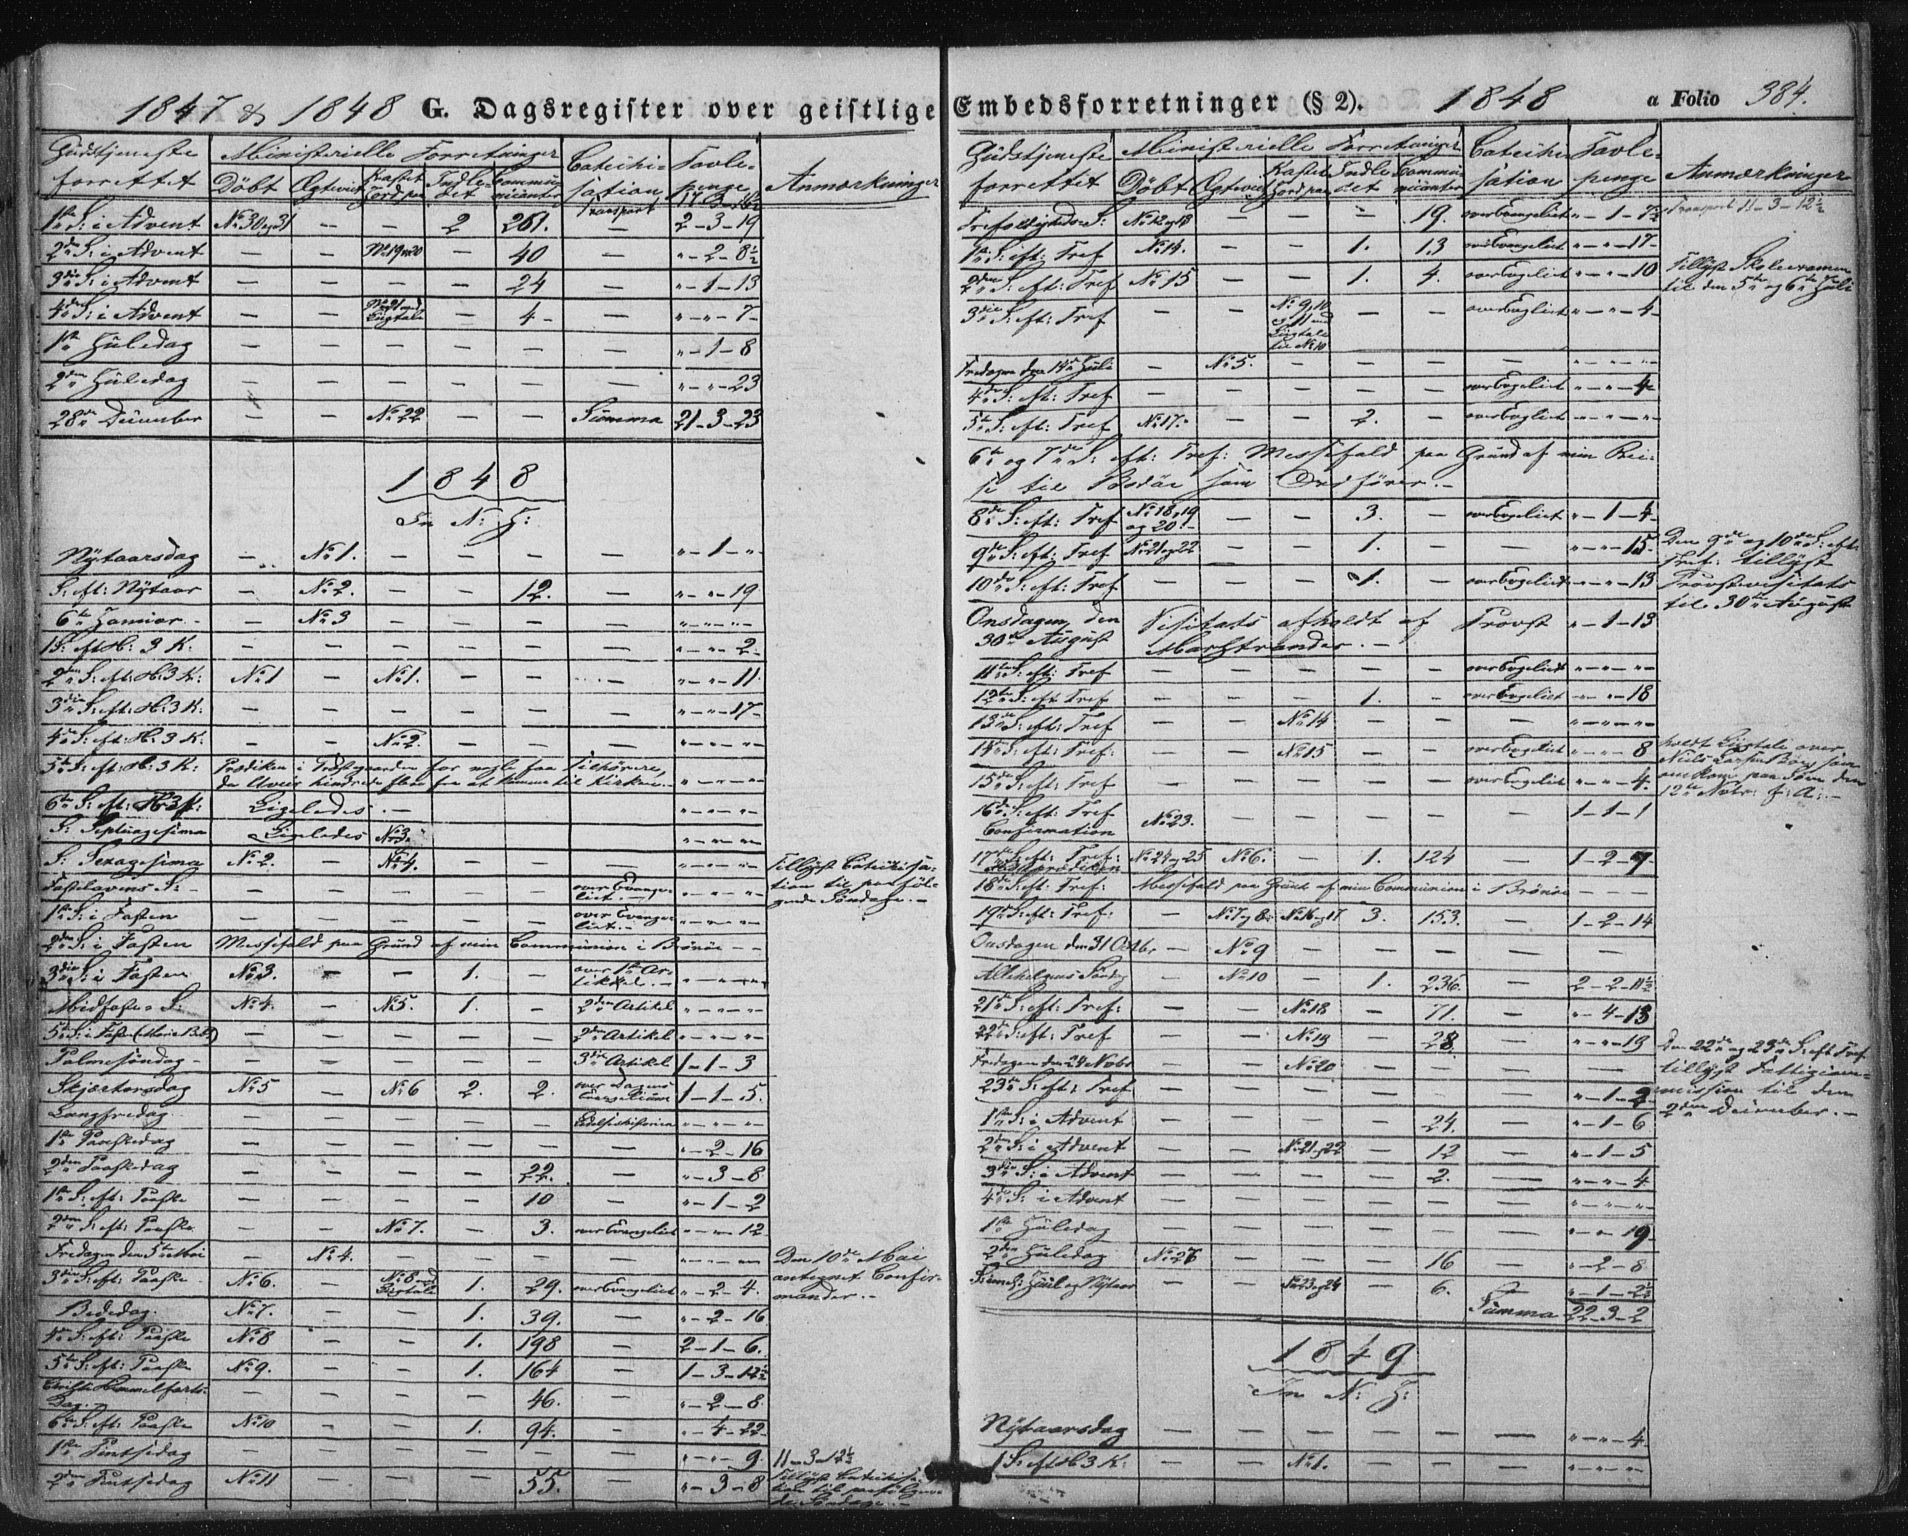 1847 & 1848 G. Dagsregister over geistlige Embedsforretninger (§ 2). 1848 a Folio 384.
Gudstjeneste forrettet | Ministerielle Forretninger | Catechisation | Tavlepenge | Anmærkninger
Døbt | Egteviet | Kastet Jord paa | Indledet | Communicanter
Transport
1ste S: i Advent № 30 og 31 — — 2 261. — 2-3-19
2den S: i Advent — — № 19 og 20 — 40 — "-2-8½
3die S: i Advent — — — — 24 — "-1-13
4de S: i Advent — — № 21 med Ligtale — 4 — "-"-7
1ste Juledag — — — — — — "-1-8
2den Juledag — — — — — — "-"-23
28de December — — № 22 — — Summa 21-3-23
1848
In N: J:
Nÿtaarsdag — № 1. — — — — "-1-"
S: eft: Nÿtaar — № 2. — — 12. — "-"-19
6te Januar — № 3 — — — — "-"-"
1 S: eft H: 3 K. — — — — — — "-"-2
2den S: eft: H: 3 K: № 1 — № 1. — — — "-"-11.
3die S: eft: H: 3 K: — — — — — — "-"-17
4de S: eft: H: 3 K: — — № 2. — — — "-"-"
5te S: eft: H: 3 K: Prædiken i Præstegaarden for nogle faa Tilhørere,
da Uveir hindrede flere fra at komme til Kirken. "-"-"
6te S: eft: H: 3 K: Ligeledes. — "-"-"
S: Septuagesima Ligeledes № 3. "-"-"
S: Sexagesima № 2. — № 4. — — — "-"-" Tillÿst Catechisation til paafølgende Søndage. —
Fastelavens S: — — — — — over Evangeliet. — "-"-"
1ste S: i Fasten — — — — — over Evangeliet. — "-"-"
2den S: i Fasten Messefald paa Grund af min Communion i Brønøe — —
3die S: i Fasten № 3. — — 1. — over 1ste Artikkel. — "-"-"
Midfaste S: № 4. — № 5. 1. — 2den Artikel "-"-"
5te S: i Faste (Mariæ Beb:) — — — — — 2den Artikel "-"-"
Palmesøndag — — — — — 3die Artikel 1-1-3
Skjærtorsdag № 5 — № 6 2. 2. over Dagens Evangelium 1-1-5.
Langfredag — — — — — Lidelseshistorien "-"-"
1ste Paaskedag — — — — — — "-2-16
2den Paaskedag — — — — 22. — "-3-8
1ste S: eft: Paaske — — — — 10 — "-1-2
2den S: eft: Paaske — — № 7. — 3. over Evangeliet "-"-12
Fredagen den 5te Mai — № 4. — — — — "-"-"
3die S: eft: Paaske № 6. — № 8 med Ligtale 1. 29. over Evangeliet "-2-4. Den 10de Mai antegnet Confirmander. —
Bededag. № 7. — — 1. 39. — "-2-16
4de S: eft: Paaske № 8 — — 1. 198 — 2-1-6.
5te S: eft: Paaske № 9. — — 1. 164 — 1-3-12½
Christi Himmelfarts-Dag. — — — — 46. — "-2-8
6te S: eft: Paaske № 10 — — 1. 94. — "-4-22
1ste Pintsedag — — — — — — "-"-9. 11-3-12½
2den Pintsedag № 11 — — — 55. — "-3-8 Tillÿst Catechisation til paafølgende Søndage. —
Gudstjeneste forrettet | Ministerielle Forretninger | Catechisation | Tavlepenge | Anmærkninger
Døbt | Egteviet | Kastet Jord paa | Indledet | Communicanter
Trefoldighds S: № 12 og 13 — — — 19. over Evangeliet "-1-7½ Transport 11-3-12½
1ste S: eft: Tref № 14. — — 1. 13 over Evangeliet "-"-17
2den S: eft: Tref № 15 — — 1. 4. over Evgeliet "-"-10 Tillÿst Skoleexamen til den 5te og 6te Juli
3die S: eft: Tref — — № 9, 10 og 11 med Ligtale til № 10 — — over Evgliet "-"-4
Fredagen den 14de Juli — № 5. — — — — "-"-"
4de S: eft: Tref — — — — — over Evgeliet "-"-4
5te S: eft: Tref № 17. — — 2. — over Evgliet "-"-"
6te og 7de S: eft: Tref: Messefald paa Grund af min Reise til Bodøe som Ordfører. —
8de S: eft: Tref № 18, 19 og 20. — — 3. — over Evgeliet "-1-4
9de S: eft: Tref № 21 og 22 — — 1. — — "-"-15 Den 9de og 10de S: eft: Tref: tillÿst Provstevisitats til 30te August
10de S: eft: Tref — — — 1. — over Evgeliet "-"-13
Onsdagen den 30te August Visitats afholdt af Provst Marstrander. — "-1-13
11te S: eft: Tref — — — — — over Evgeliet "-"-"
12te S: eft: Tref — — — 1. — over Evgeliet "-"-18
13de S: eft: Tref — — № 14 — — — "-"-"
14de S: eft: Tref: — — № 15. — — over Evgeliet "-"-8 holdt Ligtale over Niels Larsen som omkom paa Søen den 12te Novbr: f: A: —
15de S: eft: Tref — — — — — over Evgeliet "-"-4.
16de S: eft: Tref Confirmation № 23. — — — — — 1-1-1
17de S: eft: Tref: № 24 og 25 № 6. — 1. 124 — 1-2-7
18de S: eft: Tref: Messefald paa Grund af min Communion i Brønøe — — —
19de S: eft: Tref: — № 7 og 8 № 16 og 17 3. 153. — 1-2-14
Onsdagen den 31 Octbr — № 9 — — — — —
Allehelgens Søndag — № 10 — 1. 236. — 2-2-11½
21de S: eft: Tref: — — № 18 — 71. — "-4-13
22de S: eft: Tref — — № 19 — 28. — "-"-19 Den 22de og 23de S: eft Tref tillÿst Fattigcommission til den 2den December. —
Fredagen den 24 Novbr — — № 20 — — — —
23de S: eft: Tref — — — — — — "-1-2
1ste S: i Advent — — — — 24. — "-1-6
2den S: i Advent — — № 21 og 22 — 12 — "-1-5
3die S: i Advent — — — — 2. — "-"-4
4de S: i Advent — — — — — — "-"-"
1ste Juledag — — — — — — "-"-19
2den Juledag № 26 — — — 16 — "-2-8
S: imell: Juul og Nÿtaar — — № 23 og 24 — 6. — "-1-2½
Summa 22-3-2
1849
In N: J:
Nÿtaarsdag — — — — — — "-"-4
1 S: eft H 3 K: — — № 1. — — — "-"-"